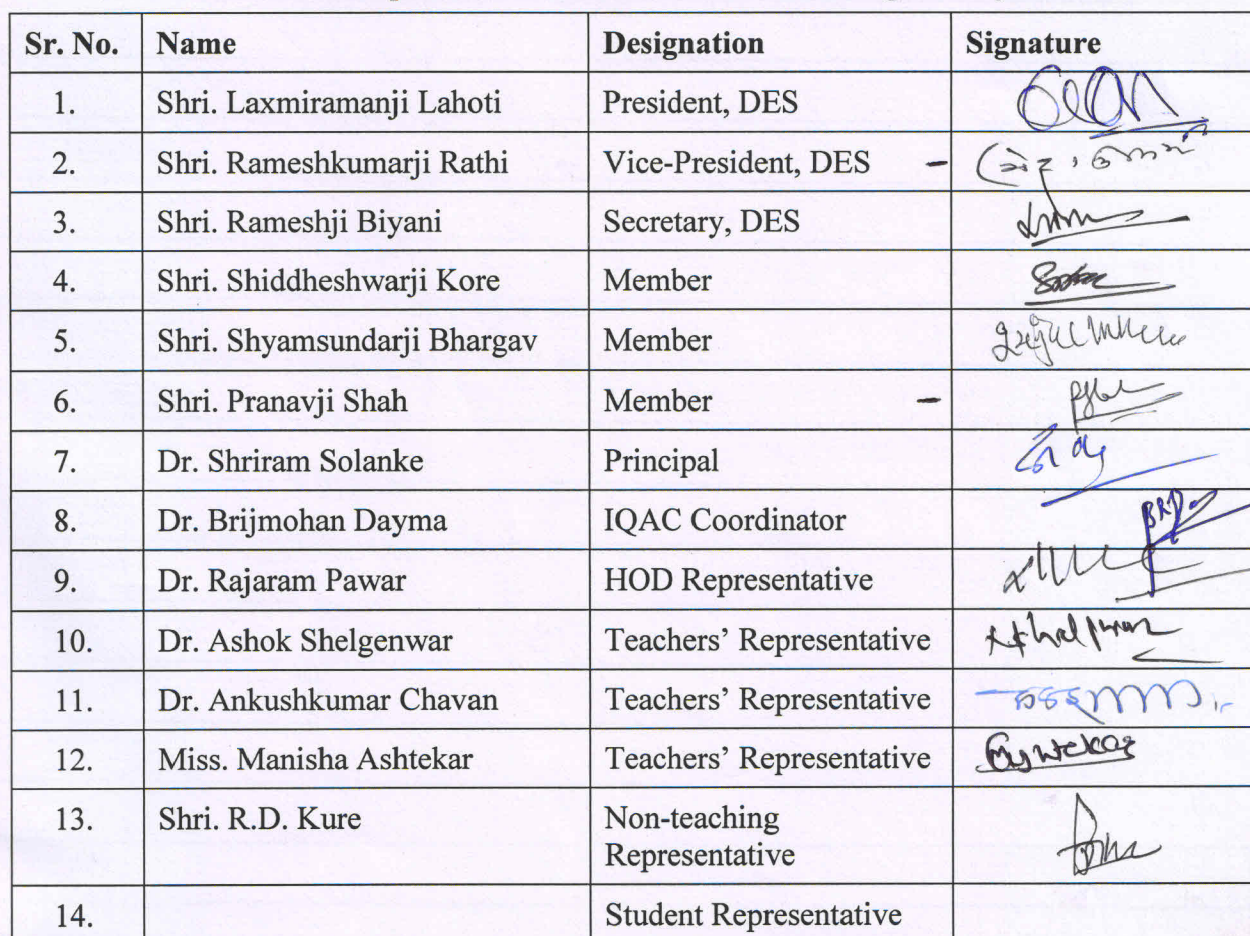 Sr. No. Name Designation Signature
1. Shri. Laxmiramanji Lahoti President, DES
2. Shri. Rameshkumarji Rathi Vice-President, DES -
3. Shri. Rameshji Biyani Secretary, DES
4. Shri. Shiddheshwarji Kore Member
5. Shri. Shyamsundarji Bhargav Member
6. Shri. Pranavji Shah Member -
7. Dr. Shriram Solanke Principal
8. Dr. Brijmohan Dayma IQAC Coordinator
9. Dr. Rajaram Pawar HOD Representative
10. Dr. Ashok Shelgenwar Teachers’ Representative
11. Dr. Ankushkumar Chavan Teachers’ Representative
12. Miss. Manisha Ashtekar Teachers’ Representative
13. Shri. R.D. Kure Non-teaching
Representative
14. Student Representative